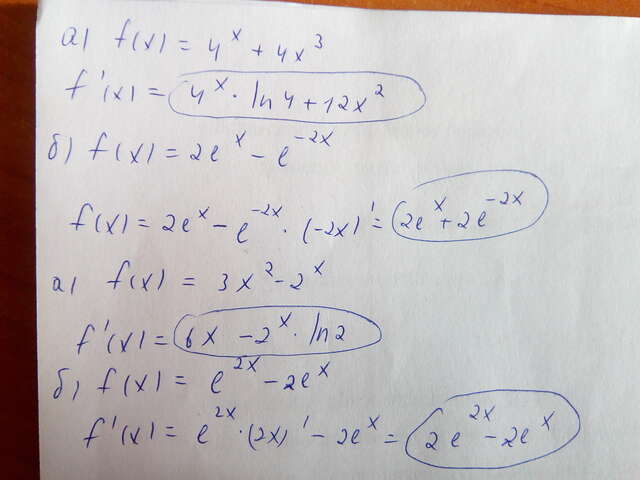 а) f(x) = 4^x + 4x^3
f'(x) = 4^x · ln 4 + 12x^2
б) f(x) = 2e^x - e^{-2x}
f(x) = 2e^x - e^{-2x} · (-2x)' = 2e^x + 2e^{-2x}
а) f(x) = 3x^2 - 2^x
f'(x) = 6x - 2^x · ln 2
б) f(x) = e^{2x} - 2e^x
f'(x) = e^{2x} · (2x)' - 2e^x = 2e^{2x} - 2e^x